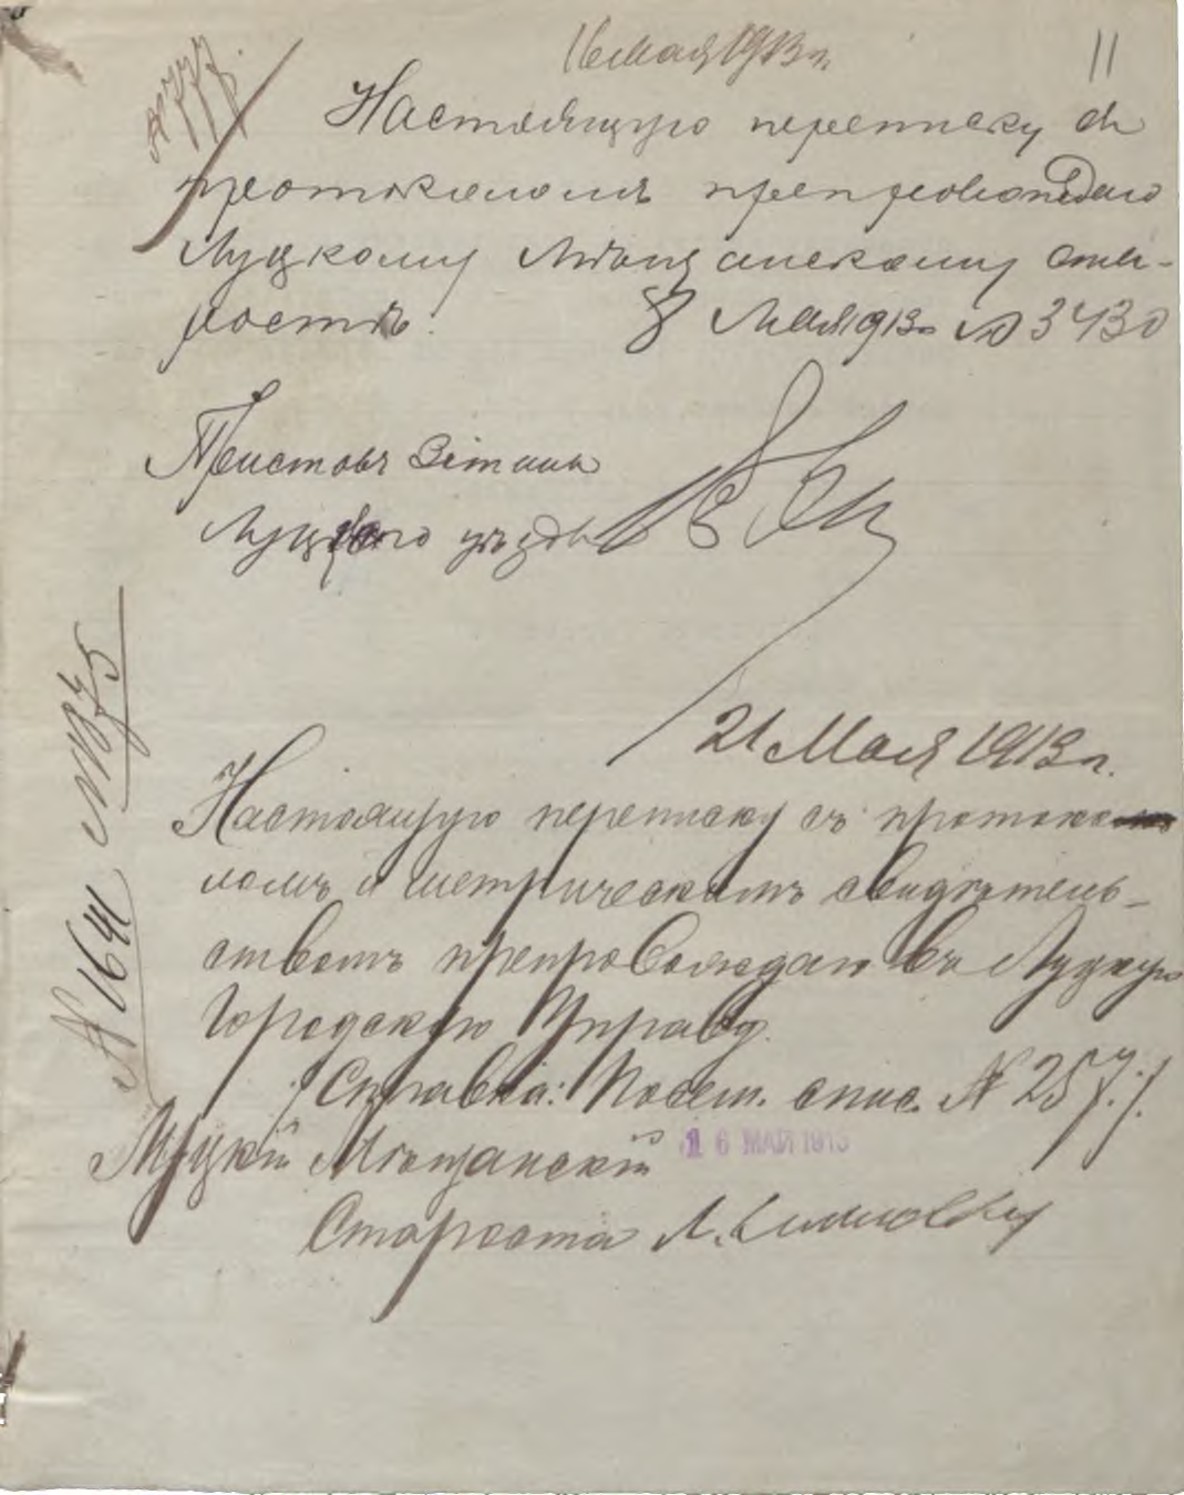 16 мая 1913 г.
11
№ 777.
Настоящую переписку съ
протоколомъ препровождаю
Луцкому Мѣщанскому ста-
ростѣ. 8 Мая 1913 г. № 3430
Приставъ 3 стана
Луцкаго уѣзда
21 Мая 1913 г.
Настоящую переписку съ протоко
ломъ и метрическимъ свидѣтель-
ствомъ препровождаю въ Луцкую
Городскую Управу.
/Справка: Посем. спис. № 257./
16 МАЙ 1913
Луцкій Мѣщанскій
Староста Л.
№ 1641